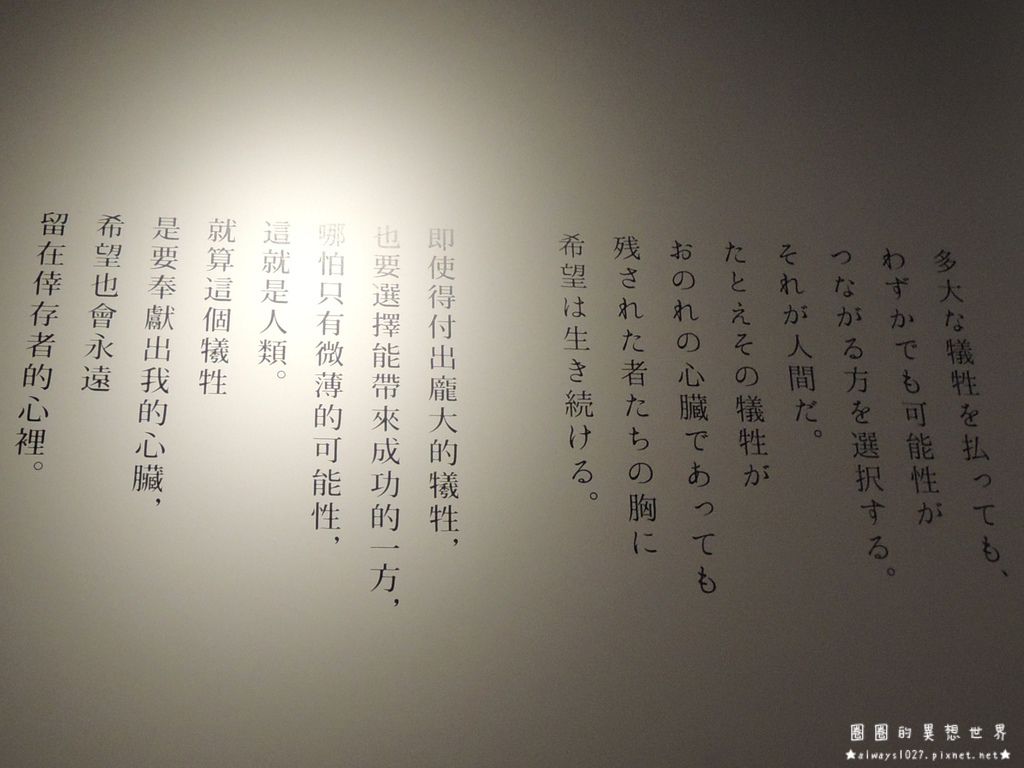 多大な犠牲を払っても、
わずかでも可能性が
つながる方を選択する。
それが人間だ。
たとえその犠牲が
おのれの心臓であっても
残された者たちの胸に
希望は生き続ける。
即使得付出龐大的犧牲，
也要選擇能帶來成功的一方，
哪怕只有微薄的可能性，
這就是人類。
就算這個犧牲
是要奉獻出我的心臟，
希望也會永遠
留在倖存者的心裡。
圈圈的異想世界
★always1027.pixnet.net★